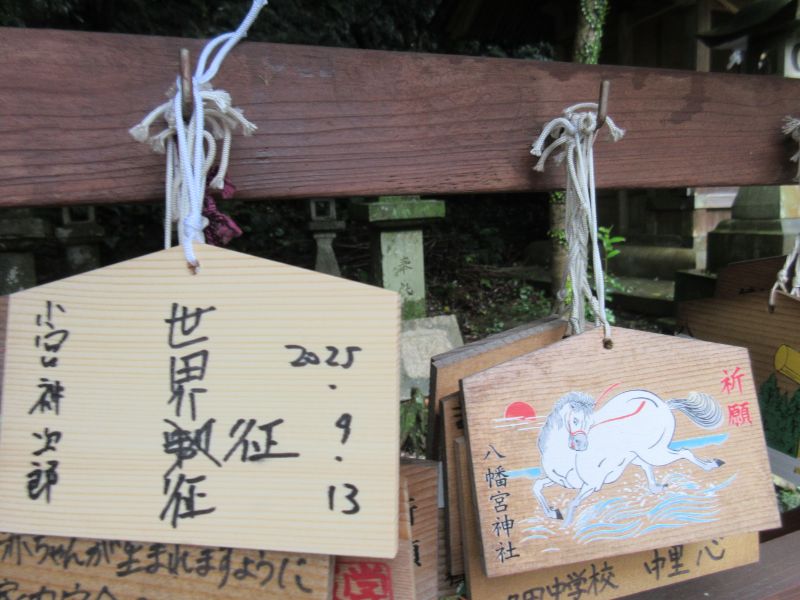 2025.9.13
世界征
征
小宮神次郎
赤ちゃんが生まれますように
祈願
八幡宮神社
田中学校 中里 心
奉